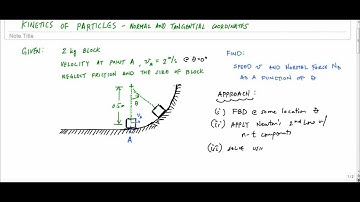 KINETICS OF PARTICLES - NORMAL AND TANGENTIAL COORDINATES
Note Title
GIVEN:
2 kg BLOCK
VELOCITY AT POINT A, v_A = 2 m/s @ θ=0°
NEGLECT FRICTION AND THE SIZE OF BLOCK
FIND:
SPEED v AND NORMAL FORCE N_B
AS A FUNCTION OF θ
APPROACH:
(i) FBD @ some location θ
(ii) APPLY Newton's 2nd Law w/
n-t components
(iii) SOLVE
0.5 m
θ
v_A
A